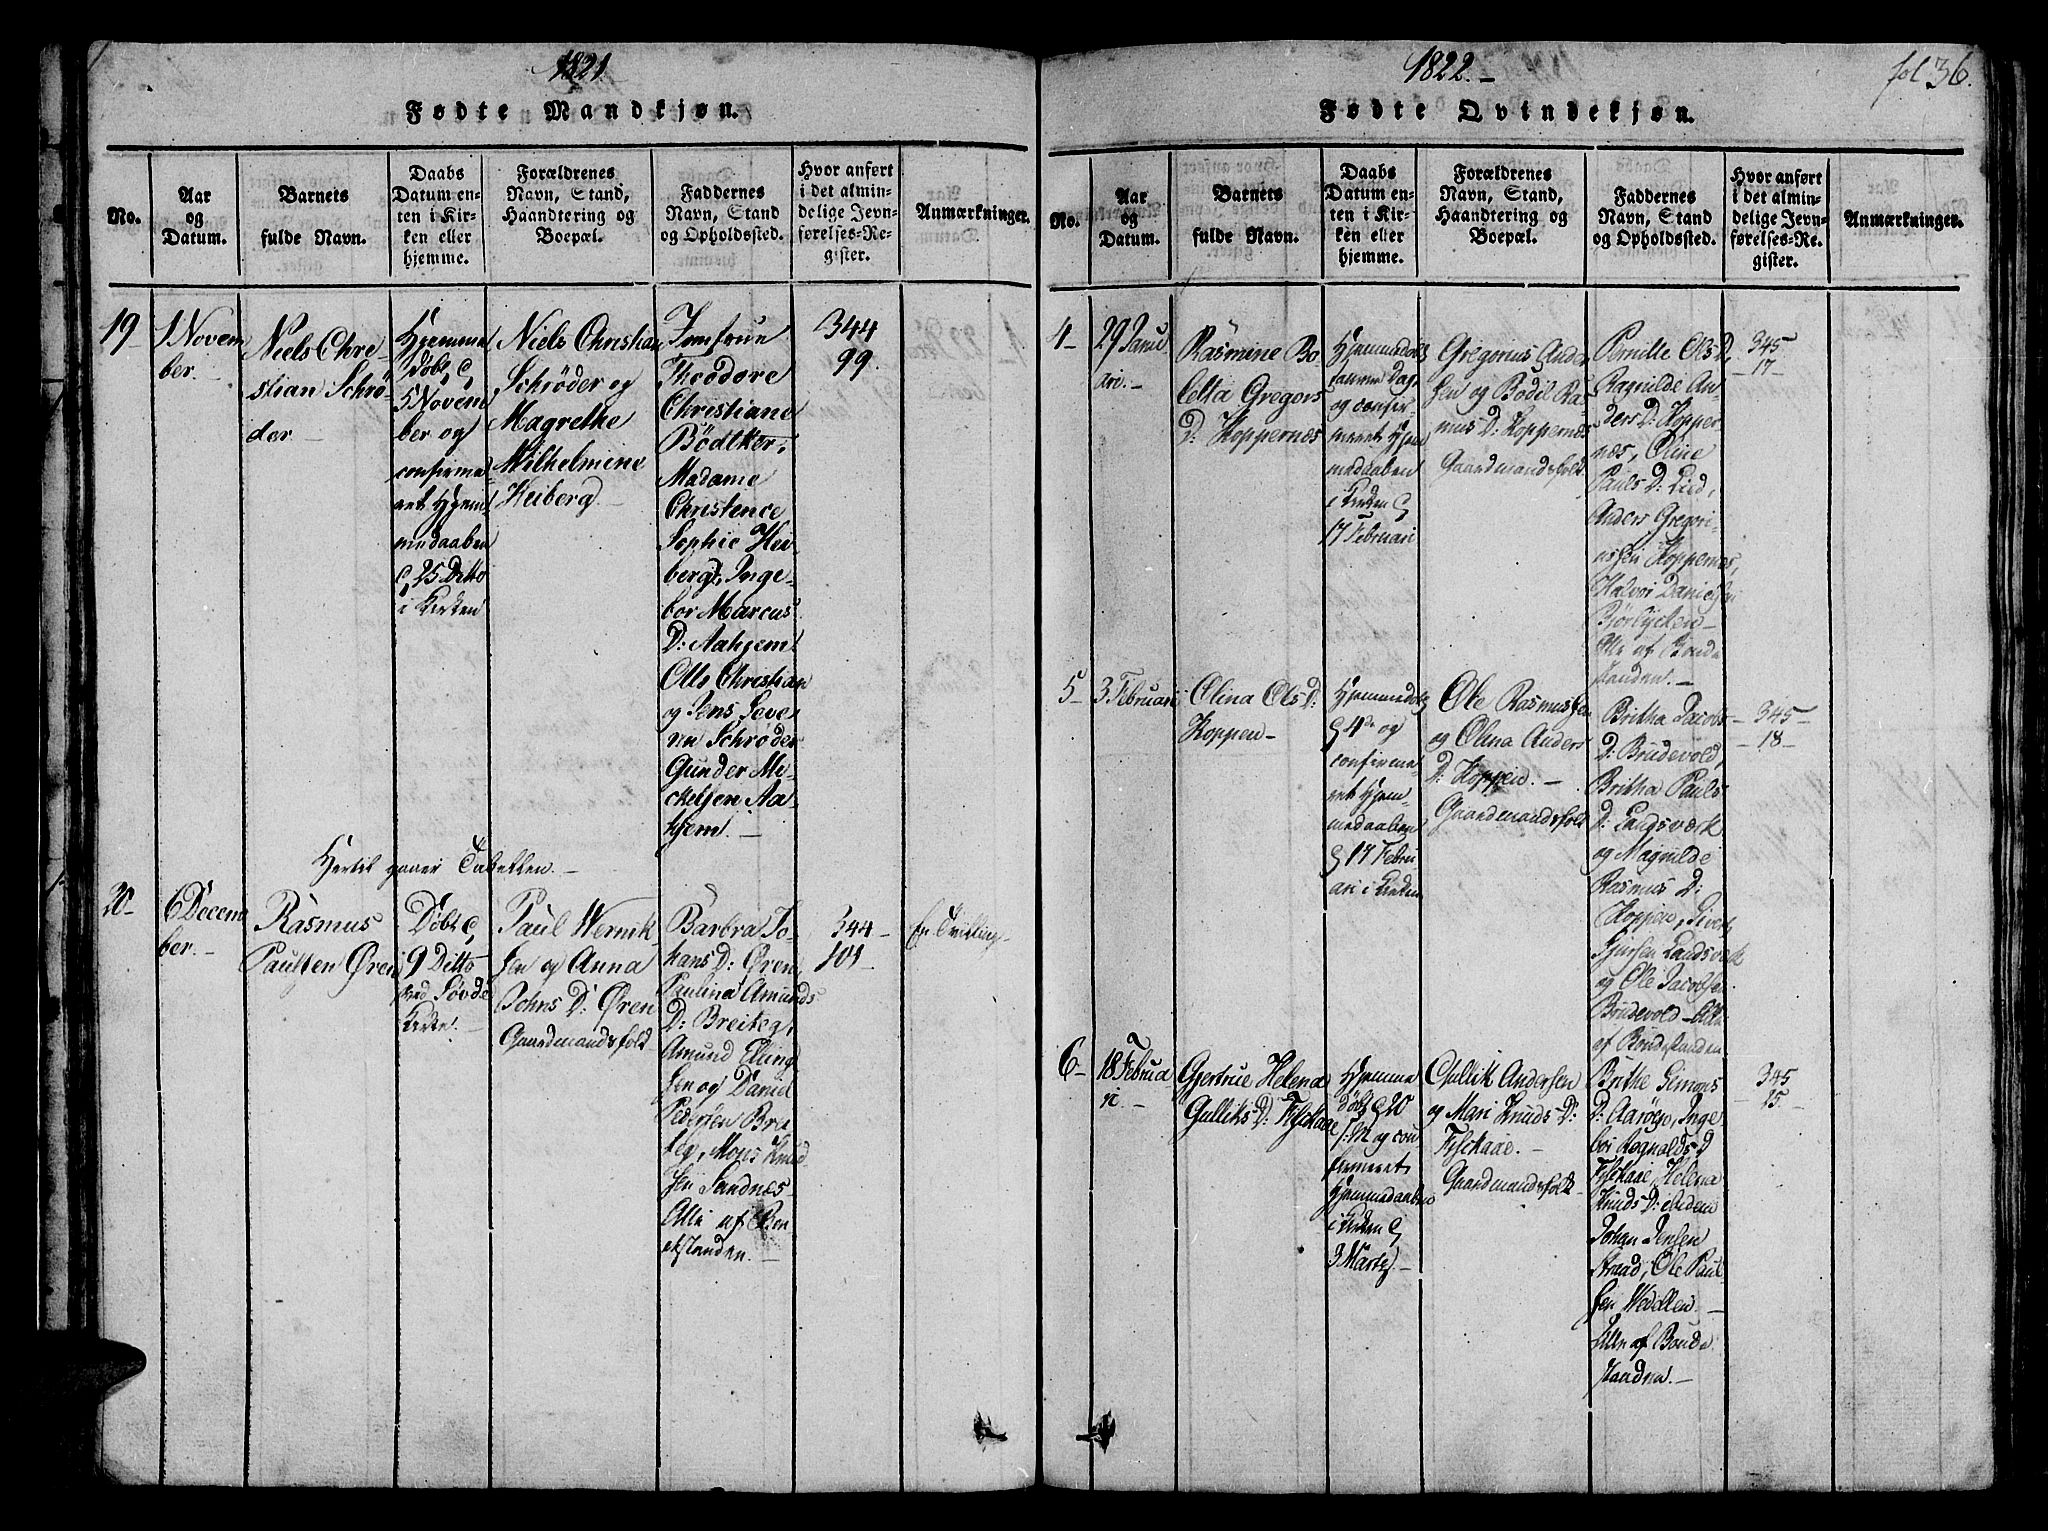 1821
Fødte Mandkjøn.
No.
Aar
og
Datum.
Barnets
fulde Navn.
Daabs
Datum en-
ten i Kir-
ken eller
hjemme.
Forældrenes
Navn, Stand,
Haandtering og
Boepæl.
Faddernes
Navn, Stand
og Opholdssted.
Hvor anført
i det almin-
delige Jevn-
førelses-Re-
gister.
Anmærkninger.
19-
1 Novem
ber.-
Niels Chre-
stian Schrø-
der-
Hjemme
døbt
5 Novem
ber og
confirme
ret Hjem
medaaben
25 Ditto
i Kirken
Niels Christian
Schrøder og
Magrethe
Wilhelmine
Heiberg.-
Jomfrue
Theodore
Christiane
Bödtker,
Madame
Christence
Sophie Hei-
berg, Inge-
bor Marcus
D: Aahjem
Olle Christian
og Jens Seve-
rin Schrøder
Gunder Mi-
ckelsen Aa-
hjem.-
344
99.
Hertil gaaer Tabellen.-
20-
6 Decem
ber.-
Rasmus
Paulsen Øren
Døbt
9 Ditto
ved Søvde
Kirke.
Paul Wernik-
sen og Anna
Johns D: Øren
Gaardmandsfolk
Barbra Jo-
hans D: Øren,
Paulina Amunds
D: Breiteg,
Amund Elling
sen og Daniel
Pedersen Brei-
teg, Mons Knud
sen Sandnes
Alle af Bon
destanden.-
344-
101-
En Tvilling-
1822.-
fol 36.
Fødte Qvindekjøn.
No.
Aar
og
Datum.
Barnets
fulde Navn.
Daabs
Datum en-
ten i Kir-
ken eller
hjemme.
Forældrenes
Navn, Stand,
Haandtering og
Boepæl.
Faddernes
Navn, Stand
og Opholdssted.
Hvor anført
i det almin-
delige Jevn-
førelses-Re-
gister.
Anmærkninger.
4-
29 Janu
ari.-
Rasmine Bo
letta Gregors
D: Koppernæs
Hjemmedøbt
samme Dag
og confir-
meret Hjem
medaaben
i Kirken
17 Februari
Gregorius Ander
sen og Bodil Ras-
mus D: Koppernæs
Gaardmandsfolk
Pernille Ols D,
Ragnilde An-
ders D: Kopper
næs, Oline
Pauls D: Lied,
Anders Gregori-
ussen Koppernæs,
Halvor Danielsen
Bjørlycken-
Alle af Bonde
standen.-
345-
-17-
5-
3 Februari
Olina Ols D:
Koppen-
Hjemmedøbt
4de og
confirme-
ret Hjem-
medaaben
17 Febru
ari i Kirken
Ole Rasmussen
og Olina Anders
D: Koppen.-
Gaardmandsfolk
Britha Jacobs-
D: Brudevold,
Britha Pauls
D: Langsværk
og Magnilde
Rasmus D:
Koppen, Siver
og Ole Jacobsen
Brudevold-Alle
af Bondestanden
345-
-18-
6-
18 Februa
ri.-
Gjertrue Helena
Gulliks D: Fiskaae
Hjemme
døbt 20
og con
firmeret
Hjemmedaaben
i Kirken
3 Martz.-
Gullik Andersen
og Mari Knuds D:
Fiskaae.-
Gaardmandsfolk
Brithe Simons
D: Aarøgo, Inge
bor Ragnalds D
Fiskaae, Helena
Knuds D:
Johan Jensen
Straad, Ole Paul
sen
Alle af Bonde
standen.-
345
-25.-